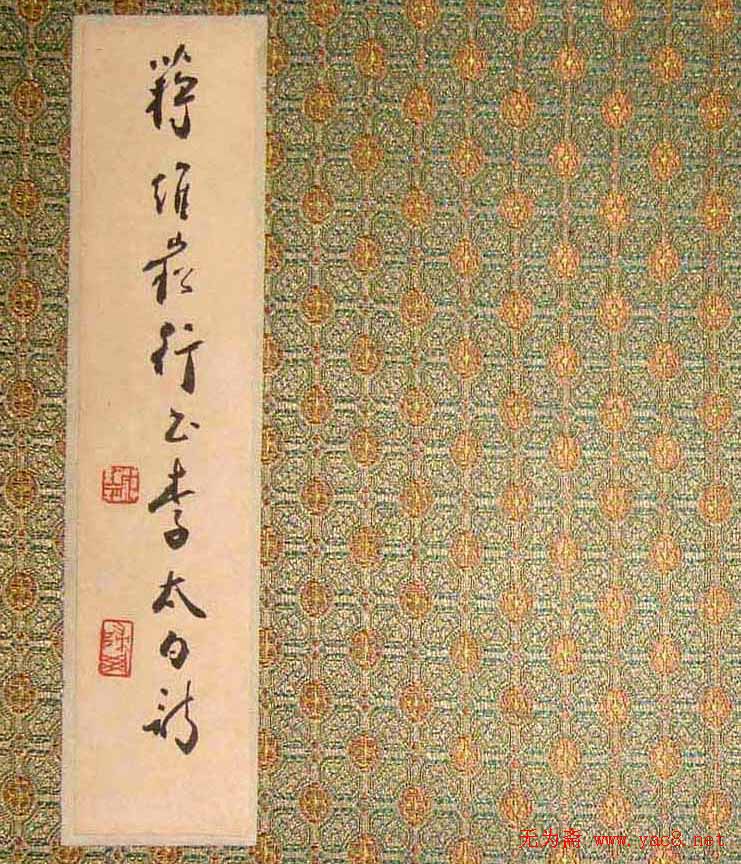 蒋维崧行书李太白诗
无为斋 www.yac8.net